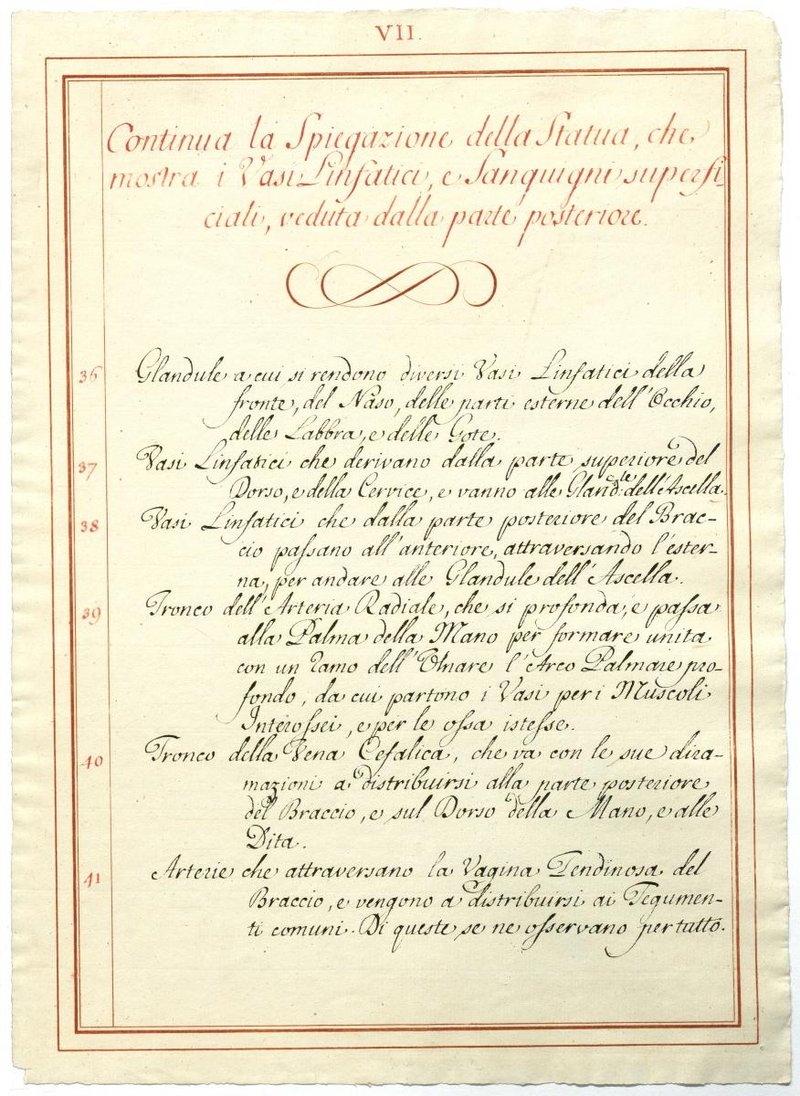 VII.
Continua la Spiegazione della Statua, che
mostra i Vasi Linfatici, e Sanguigni superfi-
ciali, veduta dalla parte posteriore.
36 Glandule a cui si rendono diversi Vasi Linfatici della
fronte, del Naso, delle parti esterne dell'Occhio,
delle Labbra, e delle Gote.
37 Vasi Linfatici che derivano dalla parte superiore del
Dorso, e della Cervice, e vanno alle Gland:le dell'Ascella.
38 Vasi Linfatici che dalla parte posteriore del Brac-
cio passano all'anteriore, attraversando l'ester-
na, per andare alle Glandule dell'Ascella.
39 Tronco dell'Arteria Radiale, che si profonda, e passa
alla Palma della Mano per formare unita
con un ramo dell'Ulnare l'Arco Palmare pro-
fondo, da cui partono i Vasi per i Muscoli
Interossei, e per le ossa istesse.
40 Tronco della Vena Cefalica, che va con le sue dira-
mazioni a distribuirsi alla parte posteriore
del Braccio, e sul Dorso della Mano, e alle
Dita.
41 Arterie che attraversano la Vagina Tendinosa del
Braccio, e vengono a distribuirsi ai Tegumen-
ti comuni. Di queste se ne osservano per tutto.